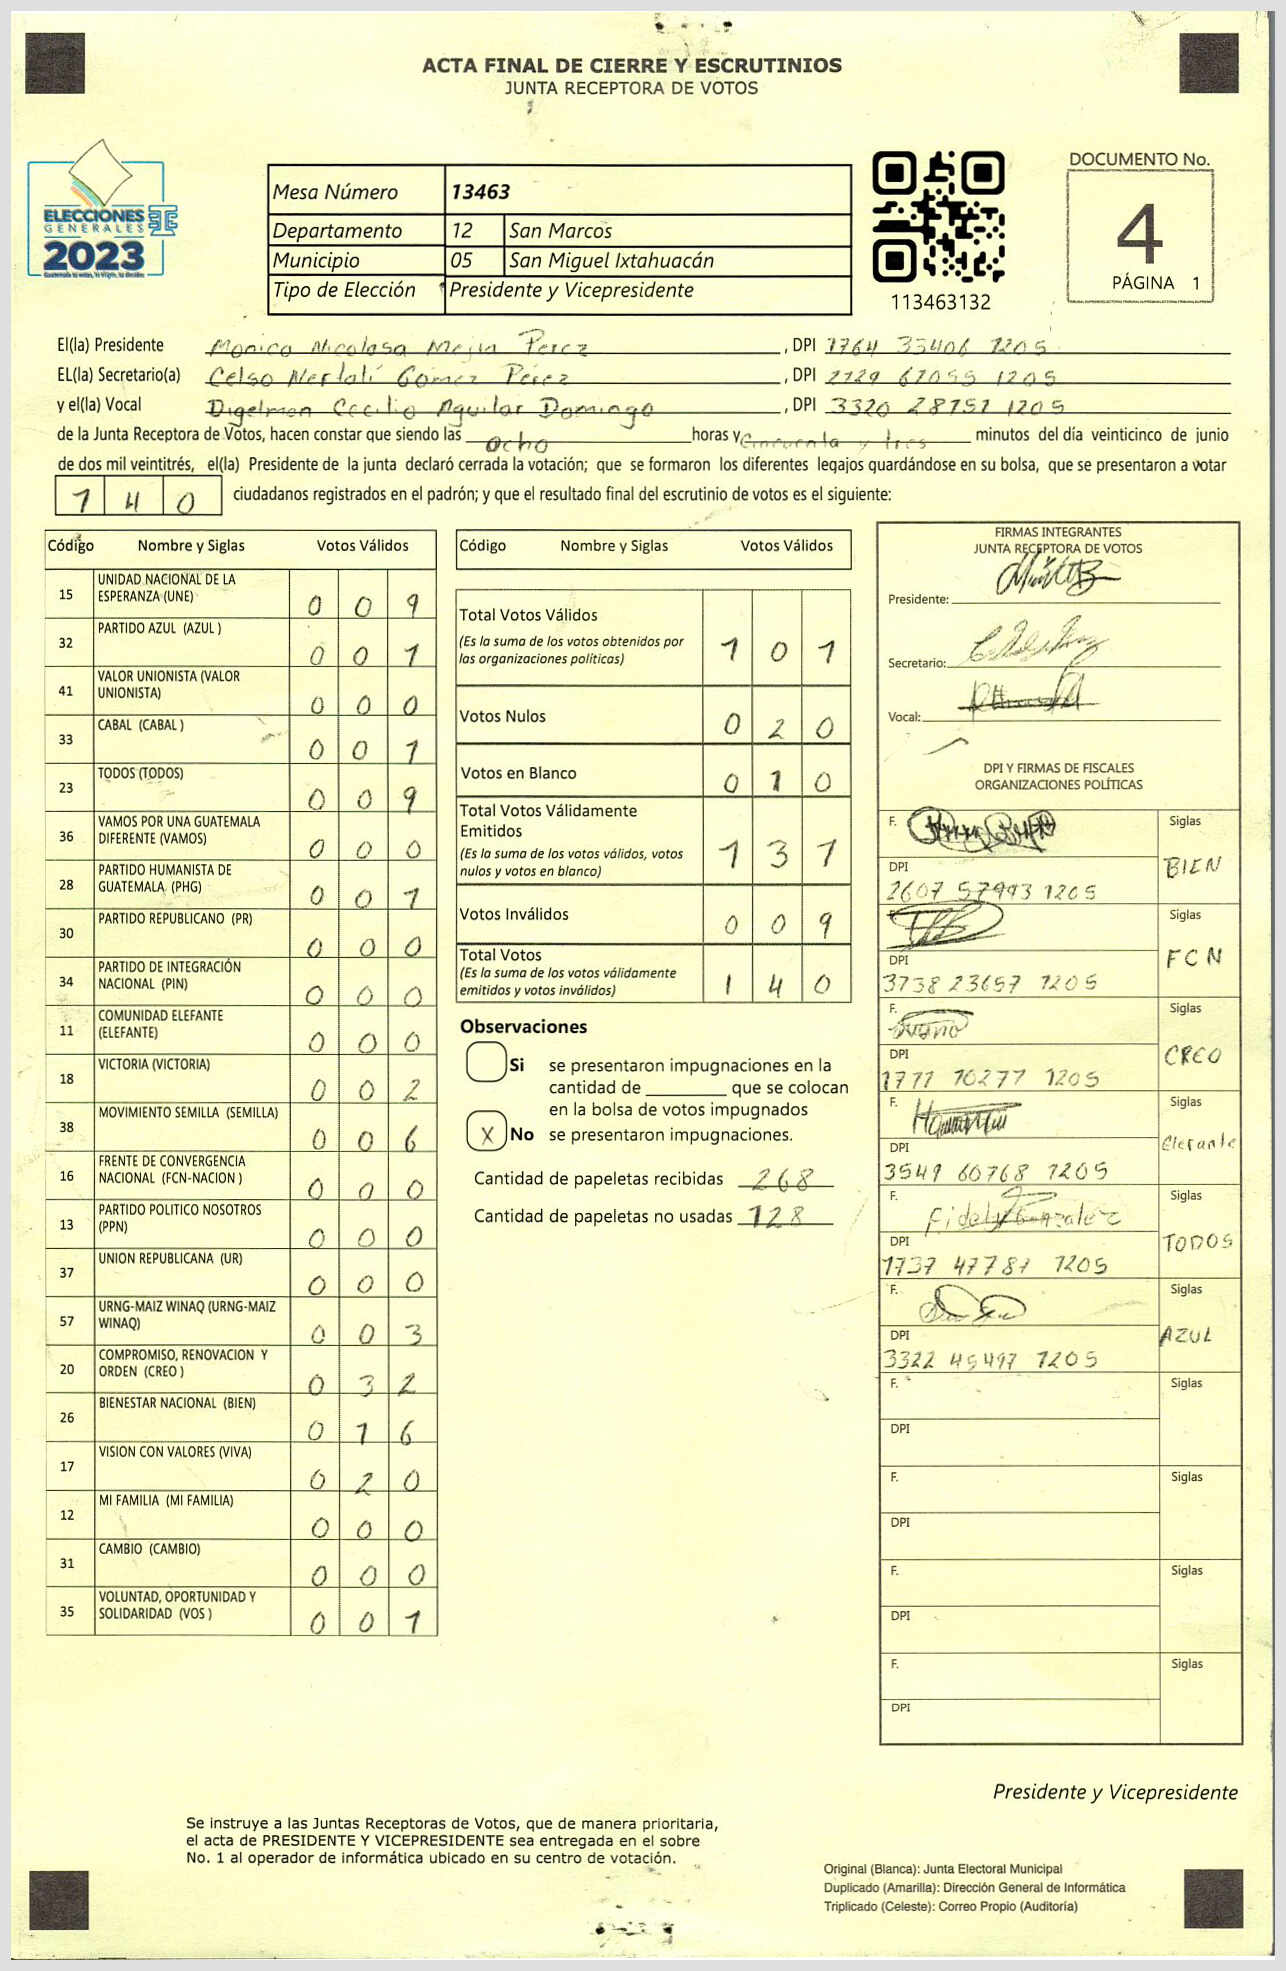 ACTA FINAL DE CIERRE Y ESCRUTINIOS
JUNTA RECEPTORA DE VOTOS
ELECCIONES
GENERALES
2023
Mesa Número 13463
Departamento 12 San Marcos
Municipio 05 San Miguel Ixtahuacán
Tipo de Elección Presidente y Vicepresidente
113463132
DOCUMENTO No.
4
PÁGINA 1
El(la) Presidente Monica Nicolasa Mejia Perez, DPI 1764 33406 1205
EL(la) Secretario(a) Celso Neftalí Gómez Pérez, DPI 2129 67055 1205
y el(la) Vocal Digelmen Cecilio Aguilar Domingo, DPI 3320 28757 1205
de la Junta Receptora de Votos, hacen constar que siendo las ocho horas y cincuenta y tres minutos del día veinticinco de junio
de dos mil veintitrés, el(la) Presidente de la junta declaró cerrada la votación; que se formaron los diferentes legajos guardándose en su bolsa, que se presentaron a votar
140 ciudadanos registrados en el padrón; y que el resultado final del escrutinio de votos es el siguiente:
Código Nombre y Siglas Votos Válidos
15 UNIDAD NACIONAL DE LA ESPERANZA (UNE) 0 0 9
32 PARTIDO AZUL (AZUL ) 0 0 1
41 VALOR UNIONISTA (VALOR UNIONISTA) 0 0 0
33 CABAL (CABAL ) 0 0 1
23 TODOS (TODOS) 0 0 9
36 VAMOS POR UNA GUATEMALA DIFERENTE (VAMOS) 0 0 0
28 PARTIDO HUMANISTA DE GUATEMALA (PHG) 0 0 1
30 PARTIDO REPUBLICANO (PR) 0 0 0
34 PARTIDO DE INTEGRACIÓN NACIONAL (PIN) 0 0 0
11 COMUNIDAD ELEFANTE (ELEFANTE) 0 0 0
18 VICTORIA (VICTORIA) 0 0 2
38 MOVIMIENTO SEMILLA (SEMILLA) 0 0 6
16 FRENTE DE CONVERGENCIA NACIONAL (FCN-NACION ) 0 0 0
13 PARTIDO POLITICO NOSOTROS (PPN) 0 0 0
37 UNION REPUBLICANA (UR) 0 0 0
57 URNG-MAIZ WINAQ (URNG-MAIZ WINAQ) 0 0 3
20 COMPROMISO, RENOVACION Y ORDEN (CREO ) 0 3 2
26 BIENESTAR NACIONAL (BIEN) 0 1 6
17 VISION CON VALORES (VIVA) 0 2 0
12 MI FAMILIA (MI FAMILIA) 0 0 0
31 CAMBIO (CAMBIO) 0 0 0
35 VOLUNTAD, OPORTUNIDAD Y SOLIDARIDAD (VOS ) 0 0 1
Código Nombre y Siglas Votos Válidos
Total Votos Válidos 1 0 1
(Es la suma de los votos obtenidos por
las organizaciones políticas)
Votos Nulos 0 2 0
Votos en Blanco 0 1 0
Total Votos Válidamente
Emitidos 1 3 1
(Es la suma de los votos válidos, votos
nulos y votos en blanco)
Votos Inválidos 0 0 9
Total Votos 1 4 0
(Es la suma de los votos válidamente
emitidos y votos inválidos)
Observaciones
Si se presentaron impugnaciones en la
cantidad de ________ que se colocan
en la bolsa de votos impugnados
X No se presentaron impugnaciones.
Cantidad de papeletas recibidas 268
Cantidad de papeletas no usadas 128
FIRMAS INTEGRANTES
JUNTA RECEPTORA DE VOTOS
Presidente:
Secretario:
Vocal:
DPI Y FIRMAS DE FISCALES
ORGANIZACIONES POLÍTICAS
F. Siglas
BIEN
DPI
2607 57993 1205
F. Siglas
FCN
DPI
3738 23657 1205
F. Siglas
CREO
DPI
1777 10277 1205
F. Siglas
Elefante
DPI
3549 60768 1205
F. Fidel Gonzalez Siglas
TODOS
DPI
1737 47787 1205
F. Siglas
AZUL
DPI
3322 45497 1205
F. Siglas
DPI
F. Siglas
DPI
F. Siglas
DPI
F. Siglas
DPI
Presidente y Vicepresidente
Se instruye a las Juntas Receptoras de Votos, que de manera prioritaria,
el acta de PRESIDENTE Y VICEPRESIDENTE sea entregada en el sobre
No. 1 al operador de informática ubicado en su centro de votación.
Original (Blanca): Junta Electoral Municipal
Duplicado (Amarilla): Dirección General de Informática
Triplicado (Celeste): Correo Propio (Auditoría)